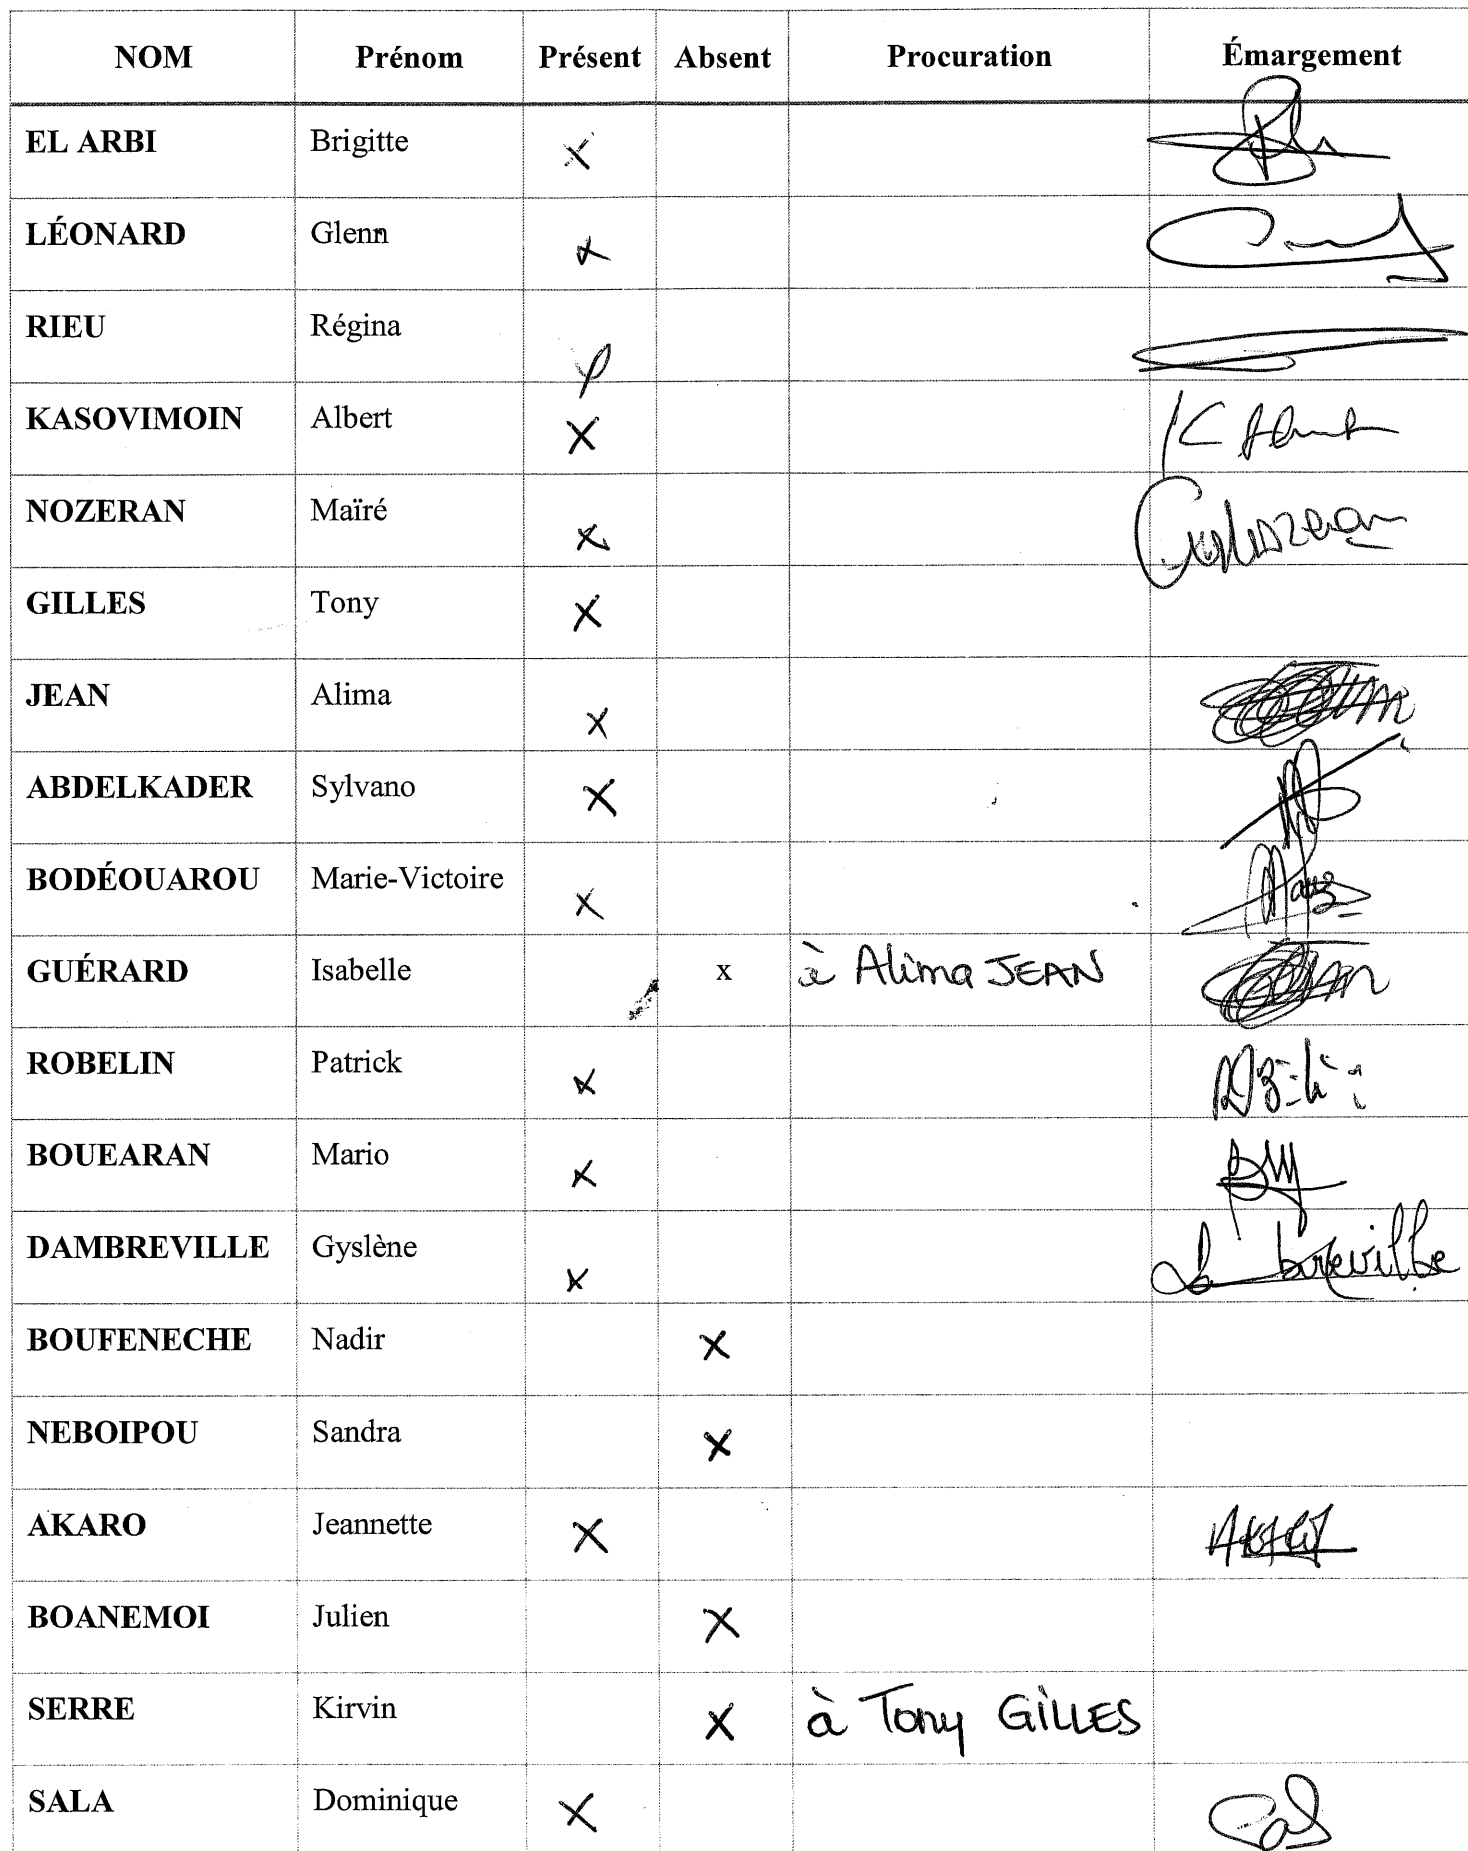 NOM Prénom Présent Absent Procuration Émargement
EL ARBI Brigitte x
LÉONARD Glenn x
RIEU Régina
KASOVIMOIN Albert x K Albert
NOZERAN Maïré x Nozeran
GILLES Tony x
JEAN Alima x
ABDELKADER Sylvano x
BODÉOUAROU Marie-Victoire x
GUÉRARD Isabelle x à Alima JEAN
ROBELIN Patrick x
BOUEARAN Mario x
DAMBREVILLE Gyslène x breville
BOUFENECHE Nadir x
NEBOIPOU Sandra x
AKARO Jeannette x
BOANEMOI Julien x
SERRE Kirvin x à Tony GILLES
SALA Dominique x